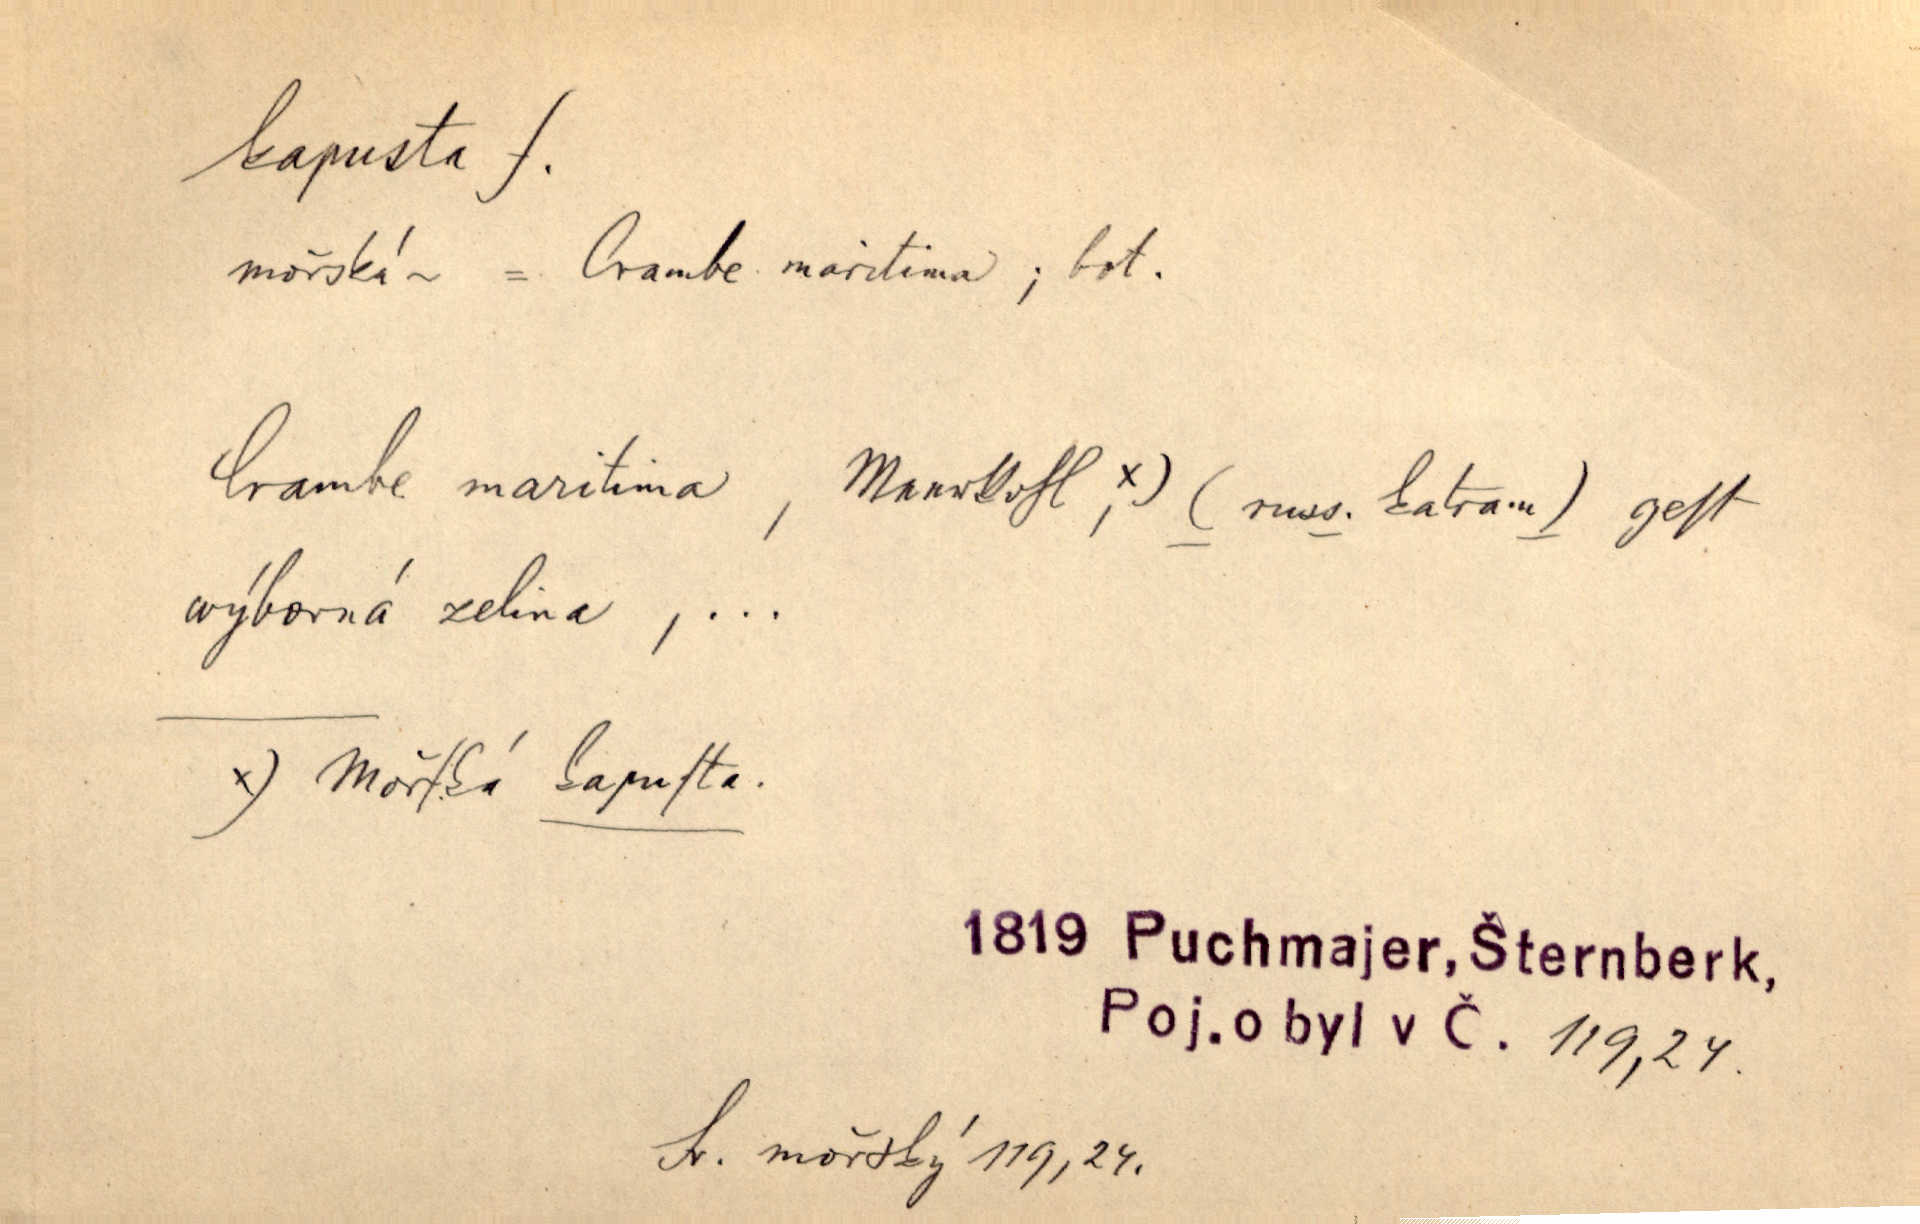 kapusta f.
mořská ~ = Crambe maritima ; bot.
Crambe maritima , Meerkohl, x) (russ. katran) geſt
wýborná zelina , ...
x) Mořſká kapuſta.
1819 Puchmajer, Šternberk,
Poj. o byl v Č. 119,24.
Sr. mořský 119,24.